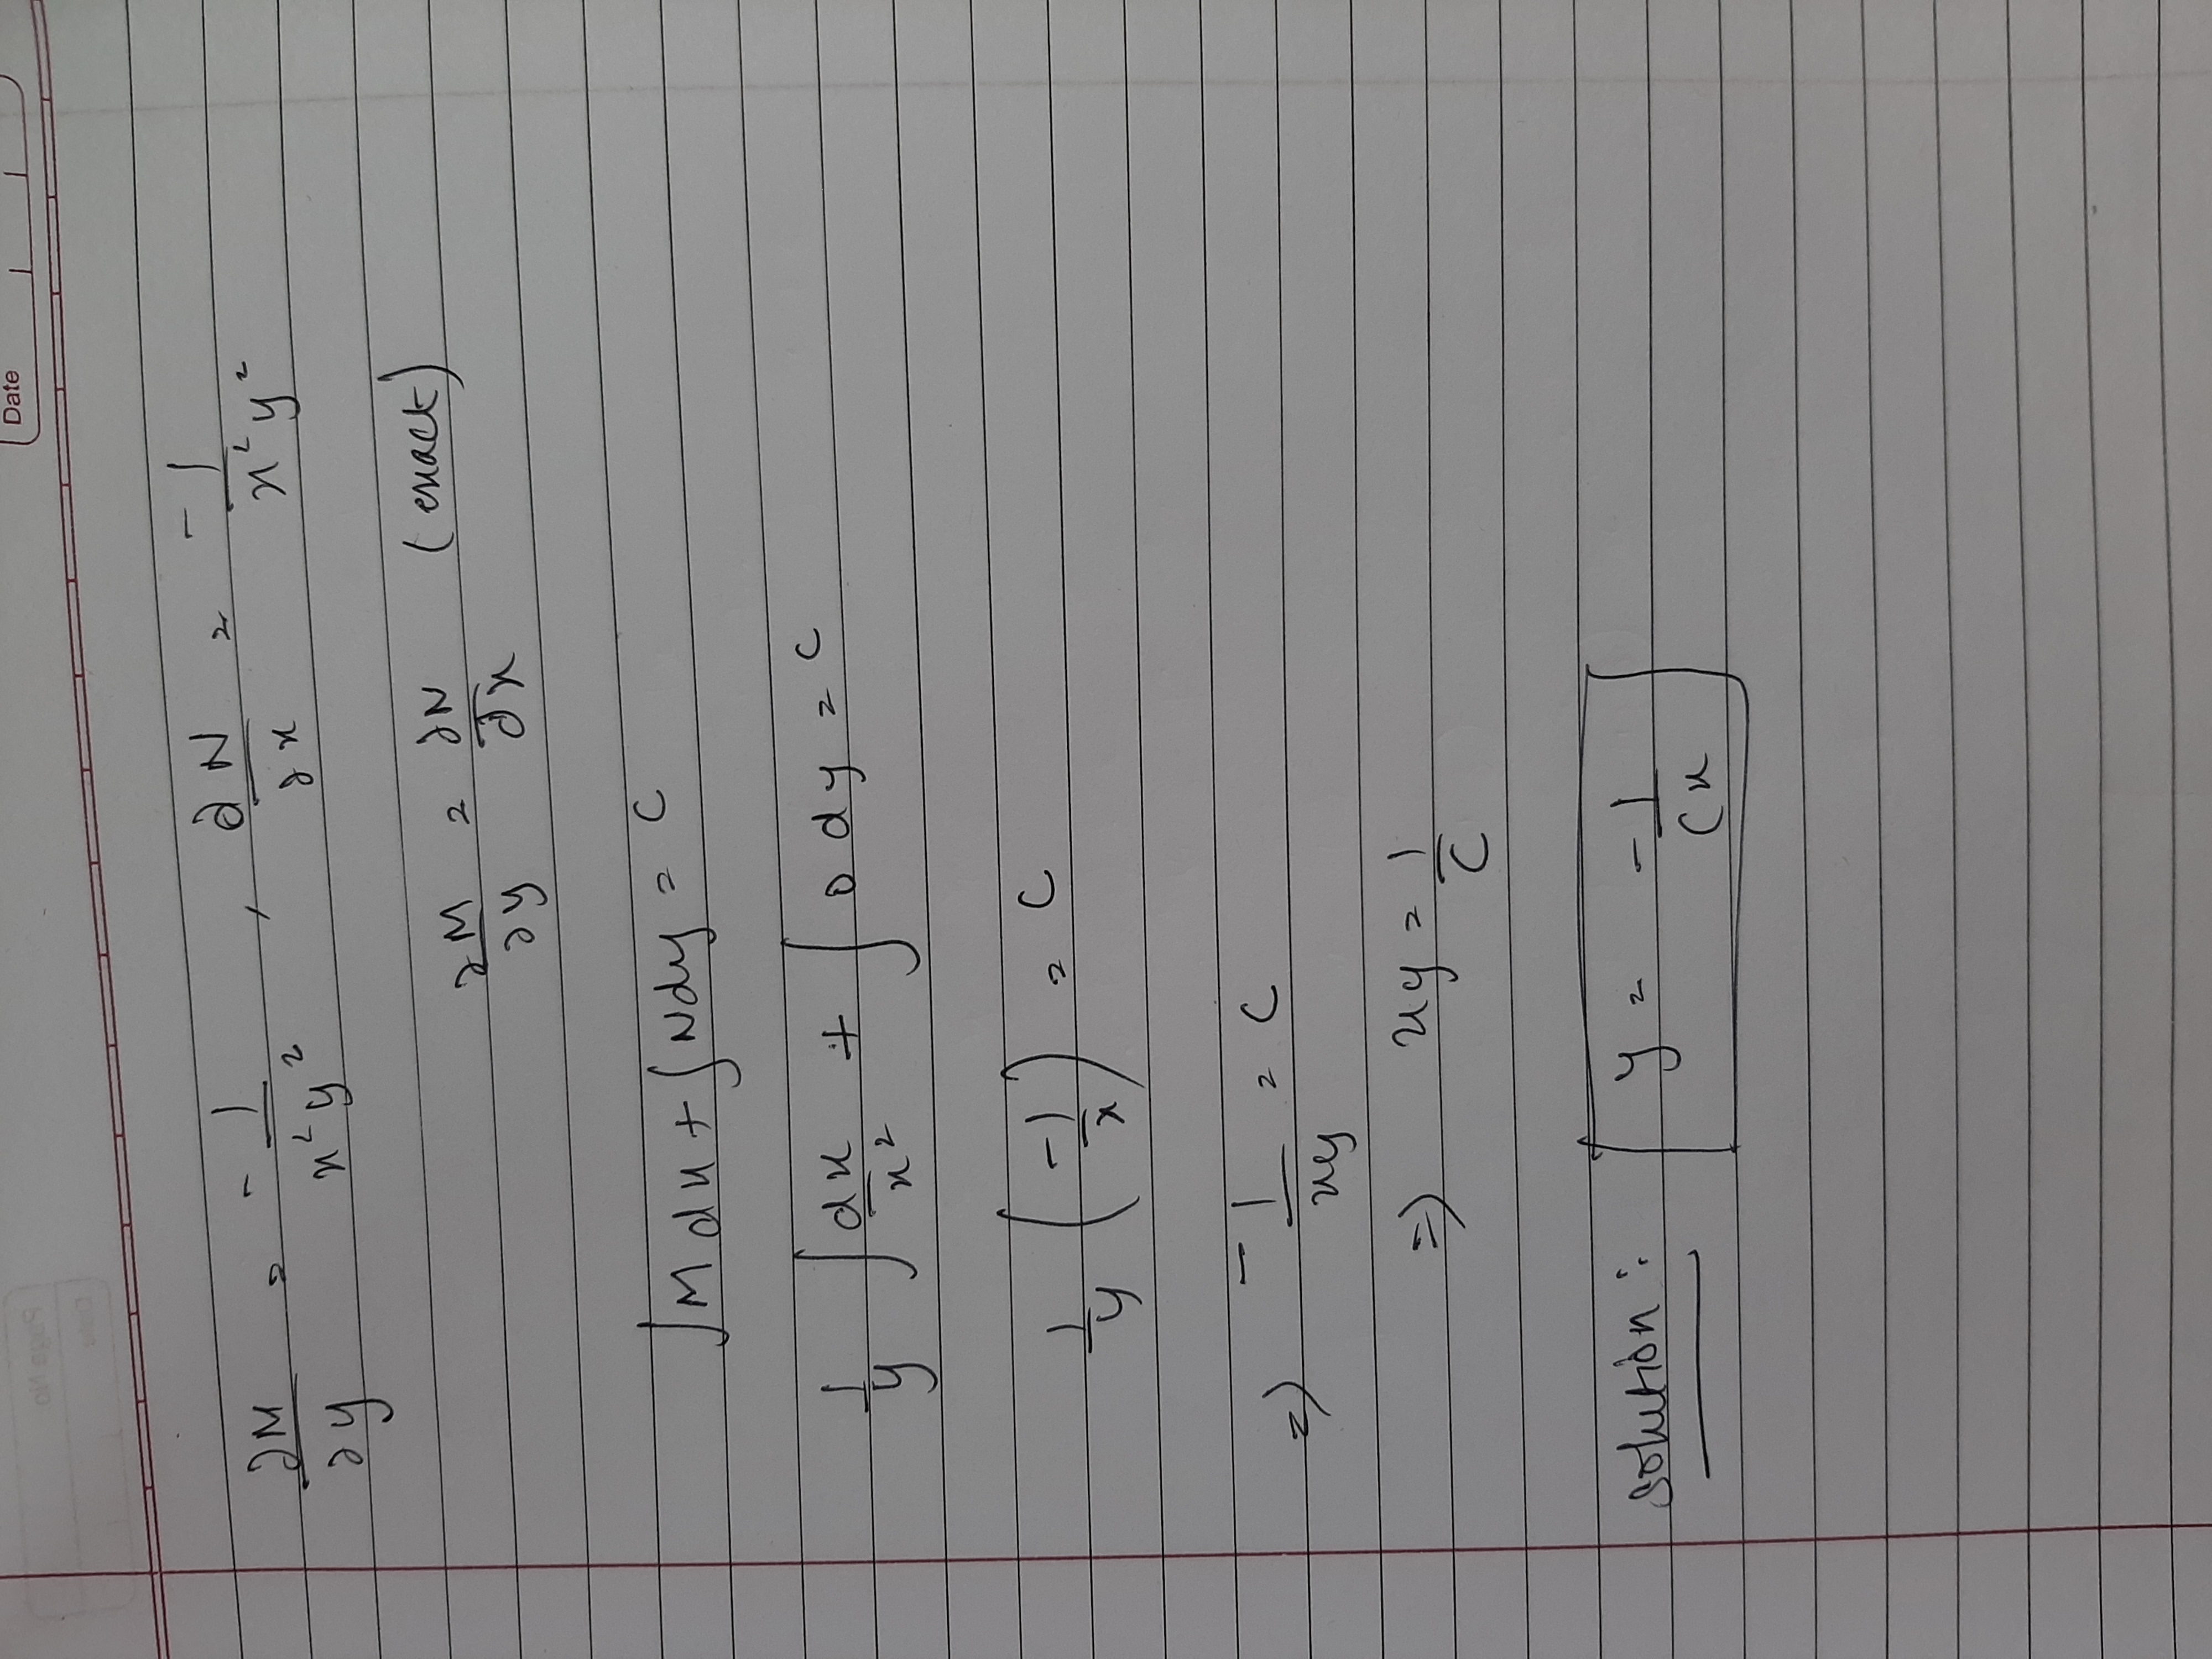 Date
∂M/∂y = -1/x²y² , ∂N/∂x = -1/x²y²
∂M/∂y = ∂N/∂x (exact)
∫M dx + ∫N dy = C
1/y ∫dx/x² + ∫0 dy = C
1/y (-1/x) = C
=> -1/xy = C
=> xy = 1/C
Solution: y = -1/Cx